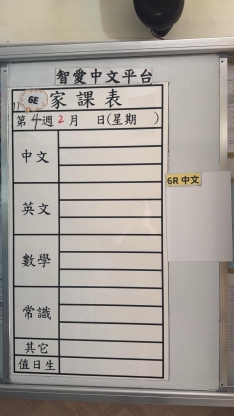 智愛中文平台
6E 家課表
第4週2月 日(星期 )
中文
6R 中文
英文
數學
常識
其它
值日生